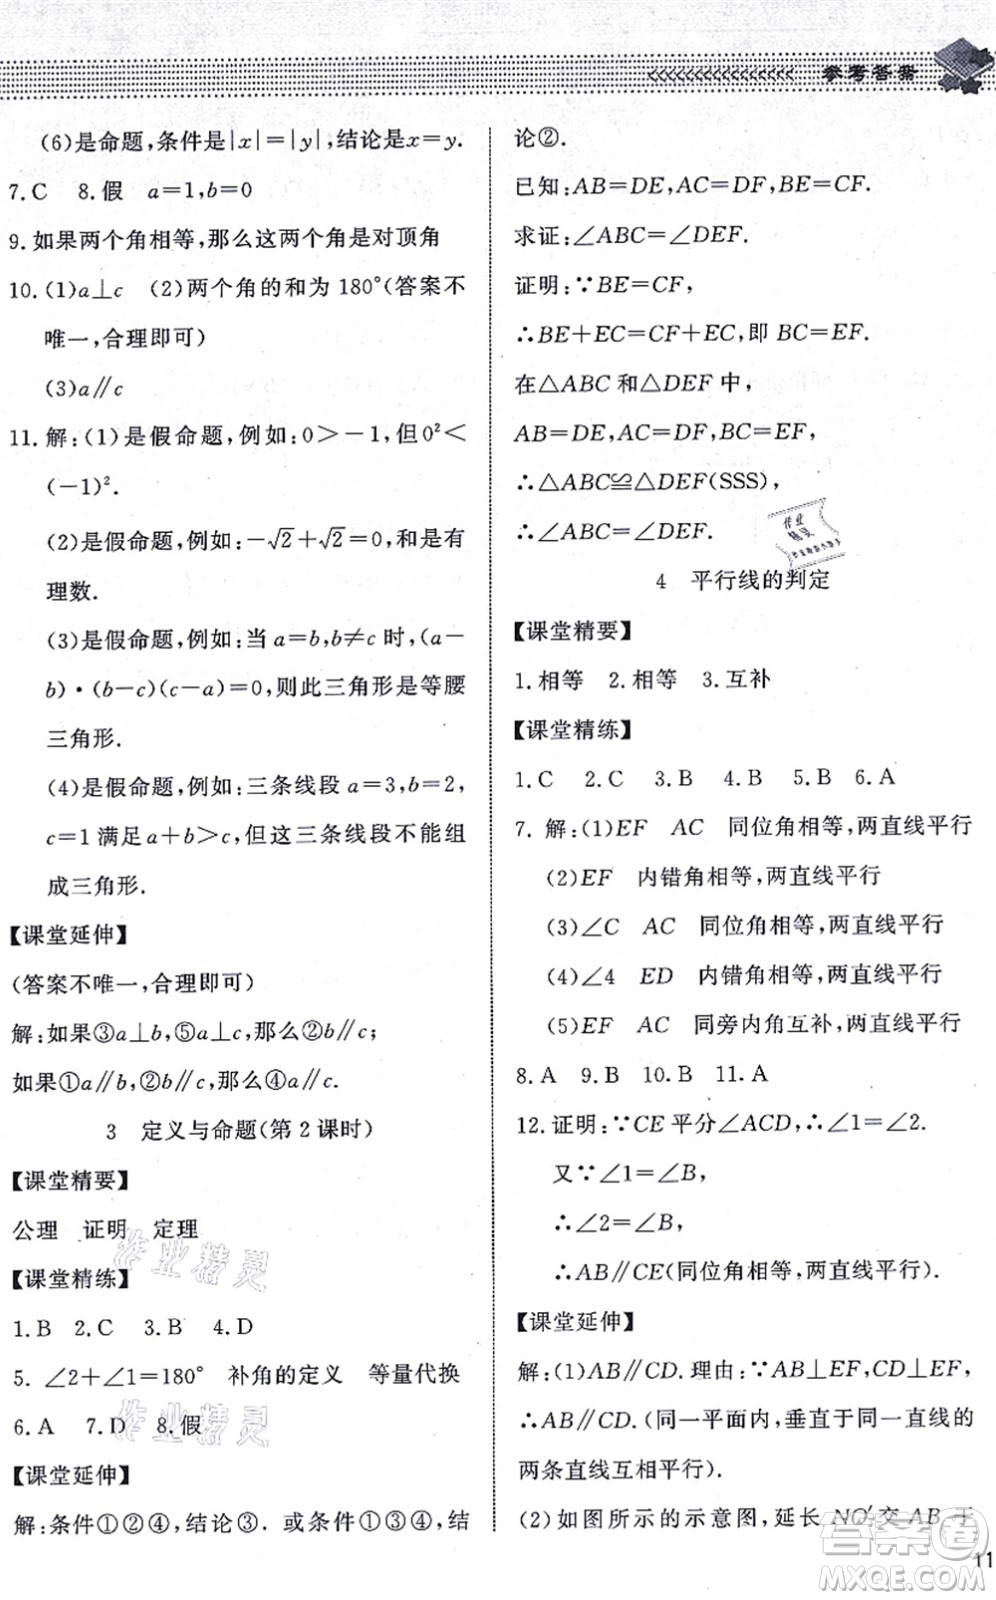 参考答案
(6)是命题,条件是|x|=|y|,结论是x=y.
7.C 8.假 a=1,b=0
9.如果两个角相等,那么这两个角是对顶角
10.(1)a⊥c (2)两个角的和为180°(答案不
唯一,合理即可)
(3)a∥c
11.解:(1)是假命题,例如:0>-1,但0²<
(-1)².
(2)是假命题,例如:-√2+√2=0,和是有
理数.
(3)是假命题,例如:当a=b,b≠c时,(a-
b)·(b-c)(c-a)=0,则此三角形是等腰
三角形.
(4)是假命题,例如:三条线段a=3,b=2,
c=1满足a+b>c,但这三条线段不能组
成三角形.
【课堂延伸】
(答案不唯一,合理即可)
解:如果③a⊥b,⑤a⊥c,那么②b∥c;
如果①a∥b,②b∥c,那么④a∥c.
3 定义与命题(第2课时)
【课堂精要】
公理 证明 定理
【课堂精练】
1.B 2.C 3.B 4.D
5.∠2+∠1=180° 补角的定义 等量代换
6.A 7.D 8.假
【课堂延伸】
解:条件①②④,结论③. 或条件①③④,结
论②.
已知:AB=DE,AC=DF,BE=CF.
求证:∠ABC=∠DEF.
证明:∵BE=CF,
∴BE+EC=CF+EC,即BC=EF.
在△ABC和△DEF中,
AB=DE,AC=DF,BC=EF,
∴△ABC≌△DEF(SSS),
∴∠ABC=∠DEF.
4 平行线的判定
【课堂精要】
1.相等 2.相等 3.互补
【课堂精练】
1.C 2.C 3.B 4.B 5.B 6.A
7. 解:(1)EF AC 同位角相等,两直线平行
(2)EF 内错角相等,两直线平行
(3)∠C AC 同位角相等,两直线平行
(4)∠4 ED 内错角相等,两直线平行
(5)EF AC 同旁内角互补,两直线平行
8.A 9.B 10.B 11.A
12.证明:∵CE平分∠ACD,∴∠1=∠2.
又∵∠1=∠B,
∴∠2=∠B,
∴AB∥CE(同位角相等,两直线平行).
【课堂延伸】
解:(1)AB∥CD.理由:∵AB⊥EF,CD⊥EF,
∴AB∥CD.(同一平面内,垂直于同一直线的
两条直线互相平行).
(2)如图所示的示意图,延长NO′交AB于
11
作业精灵
作业精灵
作业
精灵
答案圈
MXQE.COM